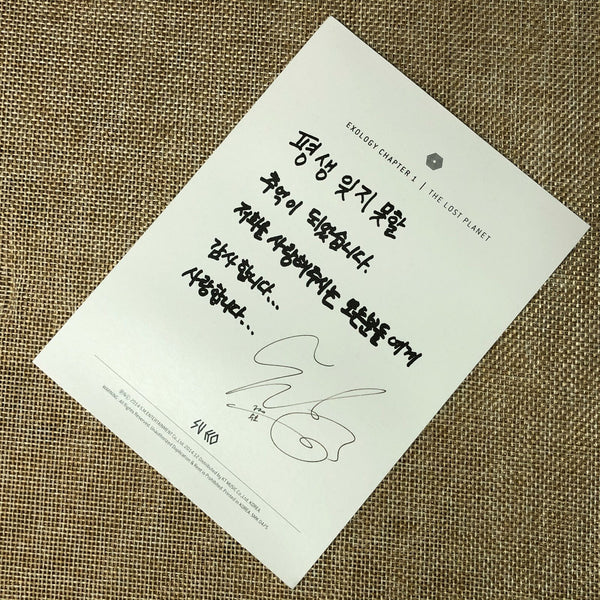 EXOLOGY CHAPTER 1 | THE LOST PLANET
평생 잊지 못할
추억이 되었습니다.
저희를 사랑해주시는 모든분들에게
감사합니다...
사랑합니다...
SUHO